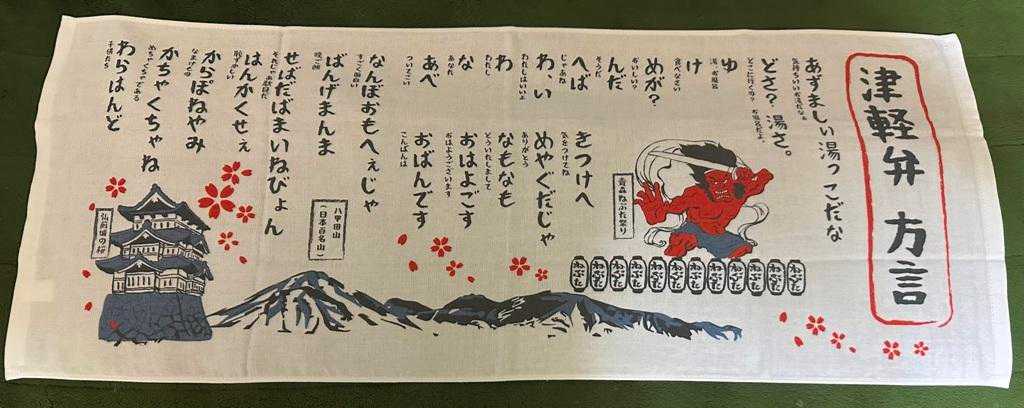 津軽弁 方言
あずましい湯っこだな
気持ちいいお湯だなぁ
どさ？湯さ。
どこに行くの？ お風呂だよ。
ゆ
湯、お風呂
け
食べなさい
めが？
おいしい？
んだ
そうだ
へば
じゃあね
わ、い
わたしはいいよ
わ
わたし
な
あなた
あべ
ついてこい
きつけへ
気をつけてね
めやぐだじゃ
ありがとう
なもなも
どういたしまして
おはよごす
おはようございます
おばんです
こんばんは
なんぼおもへぇじゃ
すごく面白い
ばんげまんま
晩ご飯
せばだばまいねびょん
それじゃあ駄目だ
はんかくせぇ
恥ずかしい
からぽねやみ
なまけもの
かちゃくちゃね
めちゃくちゃである
わらはんど
子供たち
青森ねぶた祭り
ねぶた
ねぶた
ねぶた
ねぶた
ねぶた
ねぶた
ねぶた
ねぶた
ねぶた
ねぶた
八甲田山
（日本百名山）
弘前城の桜